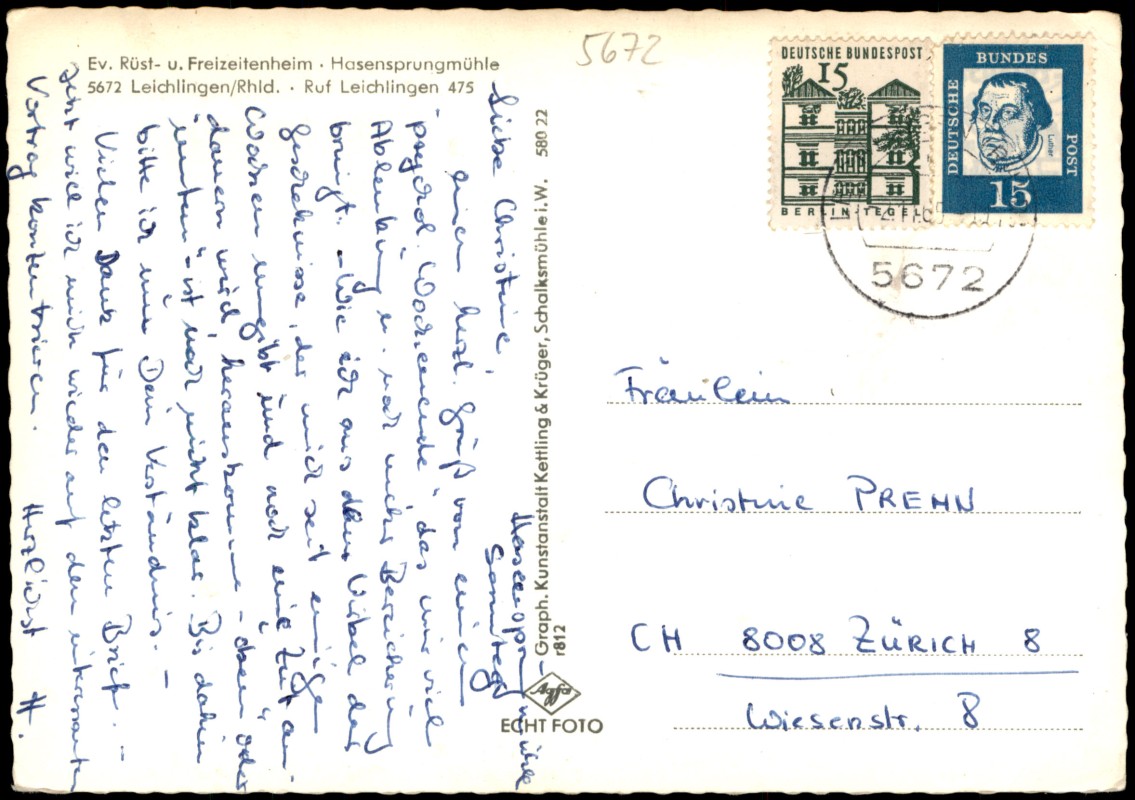 Ev. Rüst- u. Freizeitenheim · Hasensprungmühle
5672 Leichlingen/Rhld. · Ruf Leichlingen 475
5672
DEUTSCHE BUNDESPOST
15
BERLIN TEGEL
DEUTSCHE
BUNDES
POST
Luther
15
5672
Hasensprungmühle
Sonntag
Liebe Christine,
einen herzl. Gruß vom einem
"psychol. Wochenende", das mir viel
Ablenkung u. noch mehr Bereicherung
bringt. - Wie ich aus dem Wirbel der
Geschehnisse, der mich seit einigen
Wochen umgibt und noch eine Zeit an-
dauern wird, herauskomme - "oben" oder
"unten" - ist noch nicht klar. Bis dahin
bitte ich um Dein Verständnis. -
Vielen Dank für den letzten Brief. -
Jetzt will ich mich wieder auf den interessanten
Vortrag konzentrieren. Herzlichst H.
Graph. Kunstanstalt Kettling & Krüger, Schalksmühle i. W. 580 22
r812
Agfa
ECHT FOTO
Fräulein
Christine PREHN
CH 8008 ZÜRICH 8
Wiesenstr. 8